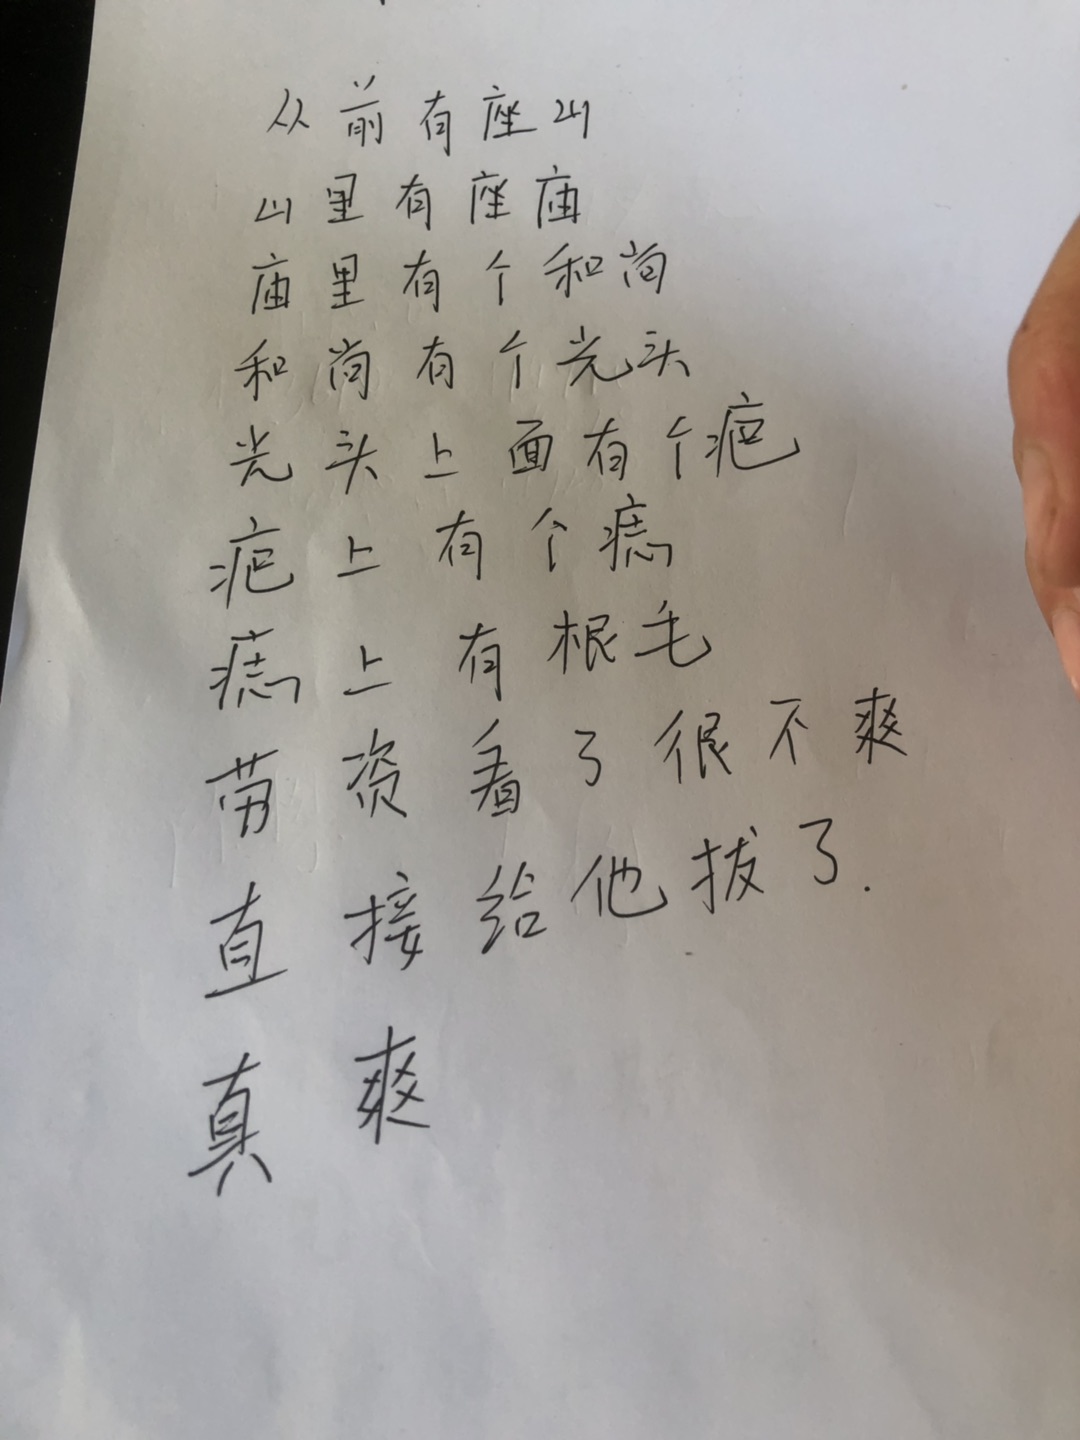 从前有座山
山里有座庙
庙里有个和尚
和尚有个光头
光头上面有个疤
疤上有个痣
痣上有根毛
劳资看了很不爽
直接给他拔了.
真爽